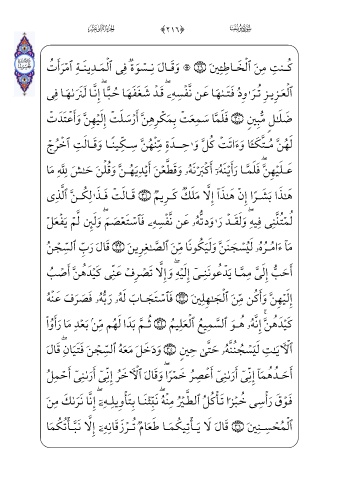 ﴿٢١٦﴾
كُنتِ مِنَ ٱلْخَاطِـِٔينَ ۞ وَقَالَ نِسْوَةٌ فِى ٱلْمَدِينَةِ ٱمْرَأَتُ
ٱلْعَزِيزِ تُرَٰوِدُ فَتَىٰهَا عَن نَّفْسِهِۦ ۖ قَدْ شَغَفَهَا حُبًّا ۖ إِنَّا لَنَرَىٰهَا فِى
ضَلَٰلٍ مُّبِينٍ فَلَمَّا سَمِعَتْ بِمَكْرِهِنَّ أَرْسَلَتْ إِلَيْهِنَّ وَأَعْتَدَتْ
لَهُنَّ مُتَّكَـًٔا وَءَاتَتْ كُلَّ وَٰحِدَةٍ مِّنْهُنَّ سِكِّينًا وَقَالَتِ ٱخْرُجْ
عَلَيْهِنَّ ۖ فَلَمَّا رَأَيْنَهُۥٓ أَكْبَرْنَهُۥ وَقَطَّعْنَ أَيْدِيَهُنَّ وَقُلْنَ حَٰشَ لِلَّهِ مَا
هَٰذَا بَشَرًا إِنْ هَٰذَآ إِلَّا مَلَكٌ كَرِيمٌ قَالَتْ فَذَٰلِكُنَّ ٱلَّذِى
لُمْتُنَّنِى فِيهِ ۖ وَلَقَدْ رَٰوَدتُّهُۥ عَن نَّفْسِهِۦ فَٱسْتَعْصَمَ ۖ وَلَئِن لَّمْ يَفْعَلْ
مَآ ءَامُرُهُۥ لَيُسْجَنَنَّ وَلَيَكُونًا مِّنَ ٱلصَّٰغِرِينَ قَالَ رَبِّ ٱلسِّجْنُ
أَحَبُّ إِلَىَّ مِمَّا يَدْعُونَنِىٓ إِلَيْهِ ۖ وَإِلَّا تَصْرِفْ عَنِّى كَيْدَهُنَّ أَصْبُ
إِلَيْهِنَّ وَأَكُن مِّنَ ٱلْجَٰهِلِينَ فَٱسْتَجَابَ لَهُۥ رَبُّهُۥ فَصَرَفَ عَنْهُ
كَيْدَهُنَّ ۚ إِنَّهُۥ هُوَ ٱلسَّمِيعُ ٱلْعَلِيمُ ثُمَّ بَدَا لَهُم مِّنۢ بَعْدِ مَا رَأَوُا۟
ٱلْـَٔايَٰتِ لَيَسْجُنُنَّهُۥ حَتَّىٰ حِينٍ وَدَخَلَ مَعَهُ ٱلسِّجْنَ فَتَيَانِ ۖ قَالَ
أَحَدُهُمَآ إِنِّىٓ أَرَىٰنِىٓ أَعْصِرُ خَمْرًا ۖ وَقَالَ ٱلْـَٔاخَرُ إِنِّىٓ أَرَىٰنِىٓ أَحْمِلُ
فَوْقَ رَأْسِى خُبْزًا تَأْكُلُ ٱلطَّيْرُ مِنْهُ ۖ نَبِّئْنَا بِتَأْوِيلِهِۦٓ ۖ إِنَّا نَرَىٰكَ مِنَ
ٱلْمُحْسِنِينَ قَالَ لَا يَأْتِيكُمَا طَعَامٌ تُرْزَقَانِهِۦٓ إِلَّا نَبَّأْتُكُمَا